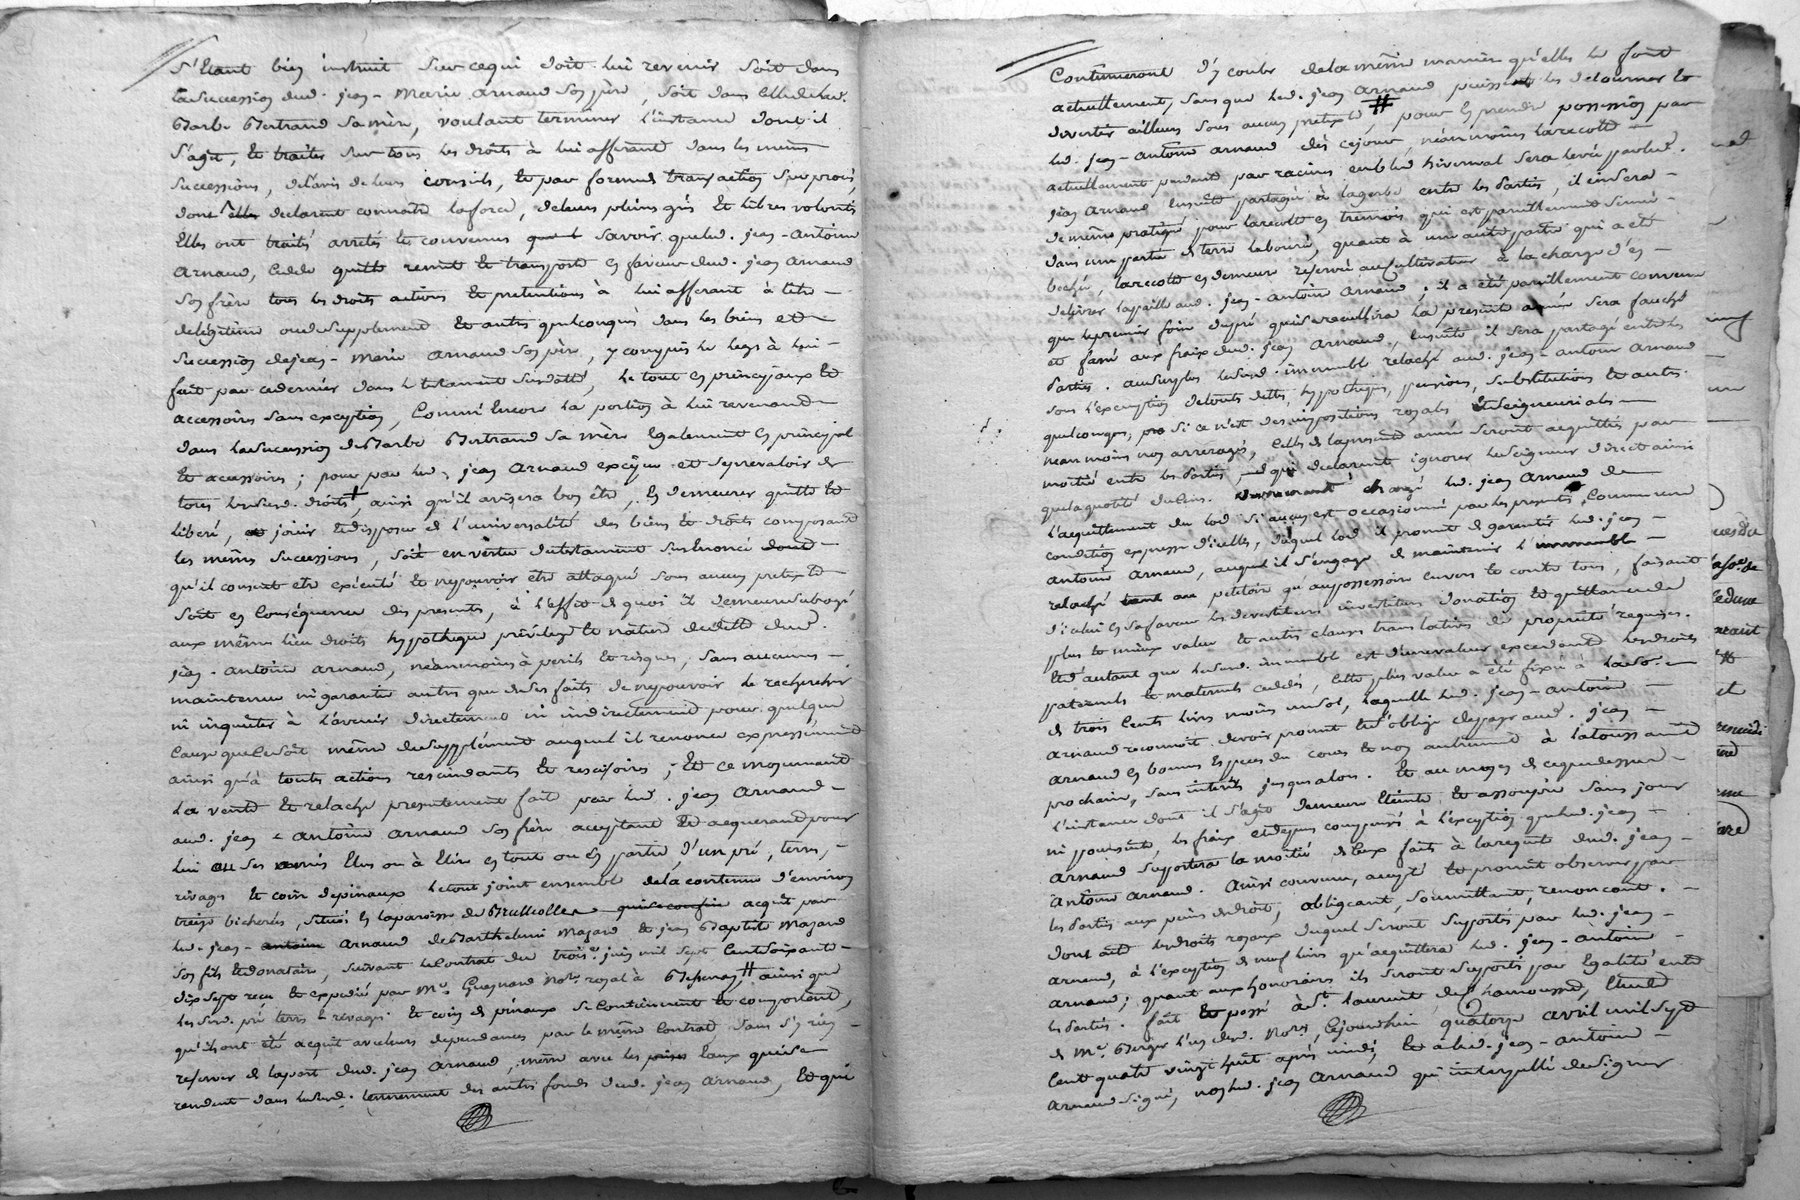 S'Etant bien instruit sur cequi doit lui revenir soit dans
la succession dud. jean-Marie arnaud son père, soit dans celle de lad.
Barbe Bertrand sa mère, voulant terminer l'instance dont il
s'agit, Et traiter sur tous les droits à lui afferant dans les mêmes
successions, de l'avis de leurs conseils, Et par forme de transaction sur procès,
dont elles declarent connaitre la force, de leurs pleins grés Et libres volontés
Elles ont traités arretés Et convenues savoir que led. jean-Antoine
Arnaud, Cedde quitte remet Et transporte en faveur dud. jean Arnaud
son frère tous les droits actions Et pretentions à lui afferant à titre
de légitime ou de supplement Et autres quelconques dans les biens et
succession de jean-Marie arnaud son père, y compris le legs à lui
fait par ce dernier dans le testament susdatté, le tout en principaux Et
accessoires sans exception, Comme Encore la portion à lui revenand
dans la succession de Barbe Bertrand sa mère Egalement en principal
Et accessoires; pour par led. jean Arnaud exiger et se prevaloir de
tous lesdsd. droits, ainsi qu'il avisera bon être, En demeurer quitte Et
liberé, jouir Et disposer de l'universalité des biens Et droits composant
les mêmes successions, soit en vertu du testament susénoncé dont
qu'il consent etre exécuté Et ne pouvoir etre attaqué sous aucun pretexte
soit en Conséquence des presentes, à l'effet de quoi il demeure subrogé
aux mêmes lieu droits hypotheque privilege Et nature de dette dud.
jean-antoine arnaud, néanmoins à perils Et risques, sans aucune
maintenue ni garantie autres que de ses faits de ne pouvoir le rechercher
ni inquieter à l'avenir directement ni indirectement pour quelque
Cause que ce soit même du supplément auquel il renonce expressement
ainsi qu'à toutes actions rescindantes Et rescisoires; Et ce moyennant
La vente Et relache presentement fait par led. jean Arnaud
aud. jean-antoine arnaud son frère acceptant Et acquerand pour
lui ou ses amis Elus ou à Elire en tout ou En partie d'un pré, terre,
rivage Et coin de pinaux le tout joint ensemble de la contenue d'environ
treize bicherées, situés En la paroisse de Brullioles acquit par
led. jean arnaud de Barthelemi Mazard Et jean Baptiste Mazard
son fils Et donataire, suivant le Contrat du trois juin mil sept Cent soixante
dix sept recu Et expedié par Me Guignard Nore royal à Bessenay # ainsi que
lesdsd. pré terre Et rivages Et coin de pinaux se Contiennent Et comportent,
qu'ils ont été acquit avec leurs dependances par le même Contrat, sans s'y rien
reserver de la part dud. jean Arnaud, même avec les eaux qui se
rendent dans lesdsd. des autres fonds dud. jean Arnaud, Et qui
Continueront d'y couler de la même manière qu'elles le font
actuellement, sans que led. jean Arnaud puisse les detourner Et
divertir ailleurs sous aucun pretexte #, pour En prendre possession par
led. jean-antoine arnaud dès ce jour, néanmoins la recolte
actuellement pendante par racines en bled hivernal sera levée par led.
jean Arnaud Ensuite partagée à la gerbe entre les Parties, il en sera
de même pratiqué pour la recolte en tremois qui est pareillement semée
dans une partie de terre labourée, quant à une autre partie qui a eté
bechée, la recolte en demeure reservée au cultivateur à la charge d'en
delivrer la paille aud. jean-antoine Arnaud; il a été pareillement convenu
que le premier foin du pré qui se recueillira la presente année sera fauché
et fané aux fraix dud. jean Arnaud, Ensuite il sera partagé entre les
Parties. au surplus lesdsd. immeuble relaché aud. jean-antoine Arnaud
sous l'exemption de toute dette, hypotheque, pensions, substitutions Et autres
quelconques, si ce n'est des impositions royales Et Seigneuriales
néanmoins non arreragés, Celles de la presente année seront acquittées par
moitié entre les Parties, qui declarent ignorer le Seigneur direct ainsi
que la quotité du Cens. chargé led. jean Arnaud de
l'acquittement du lod si aucun est occasionné par les presentes, Comme une
condition expresse d'icelles, duquel lod il promet de garantir led. jean
antoine Arnaud, auquel il s'engage de maintenir l'immeuble
relaché tant au petitoire qu'au possessoire envers Et contre tous, faisant
d'icelui En sa faveur les devestiture investiture donation Et quittance de
plus Et mieux value Et autres clauses translatives de proprieté requises.
Et d'autant que lesdsd. immeuble est d'une valeur excedante les droits
paternels Et maternels ceddés, Cette plus value a été fixée à la so.e
de trois Cents livres moins un sol, laquelle led. jean-antoine
Arnaud reconnoit devoir promet Et s'oblige de payer aud. jean
Arnaud En bonnes Especes du cours Et non autrement à la toussaint
prochaine, sans interets jusques alors. Et au moyen de ce que dessus
l'instance dont il s'agit demeure Eteinte Et assoupie sans jour
ni poursuite, les fraix Et depens compensés à l'exception que led. jean
Arnaud supportera la moitié de Ceux faits à la requete dud. jean
antoine Arnaud. Ainsi convenu, accepté Et promit observer par
les Parties aux peines de droit, obligeant, soumettant, renonçant.
Dont acte les droits royaux duquel seront supportés par led. jean
arnaud, à l'exception de neuf livres qu'acquittera led. jean-antoine
Arnaud; quant aux honoraires ils seront supportés par Egalité entre
les Parties. fait Et passé à St Laurent de Chamousset, Etude
de Me Berger l'un desd. Nores, Cejourdhui quatorze avril mil sept
Cent quatre vingt huit après midi, Et a led. jean-antoine
Arnaud signé, non led. jean Arnaud qui interpellé de signer